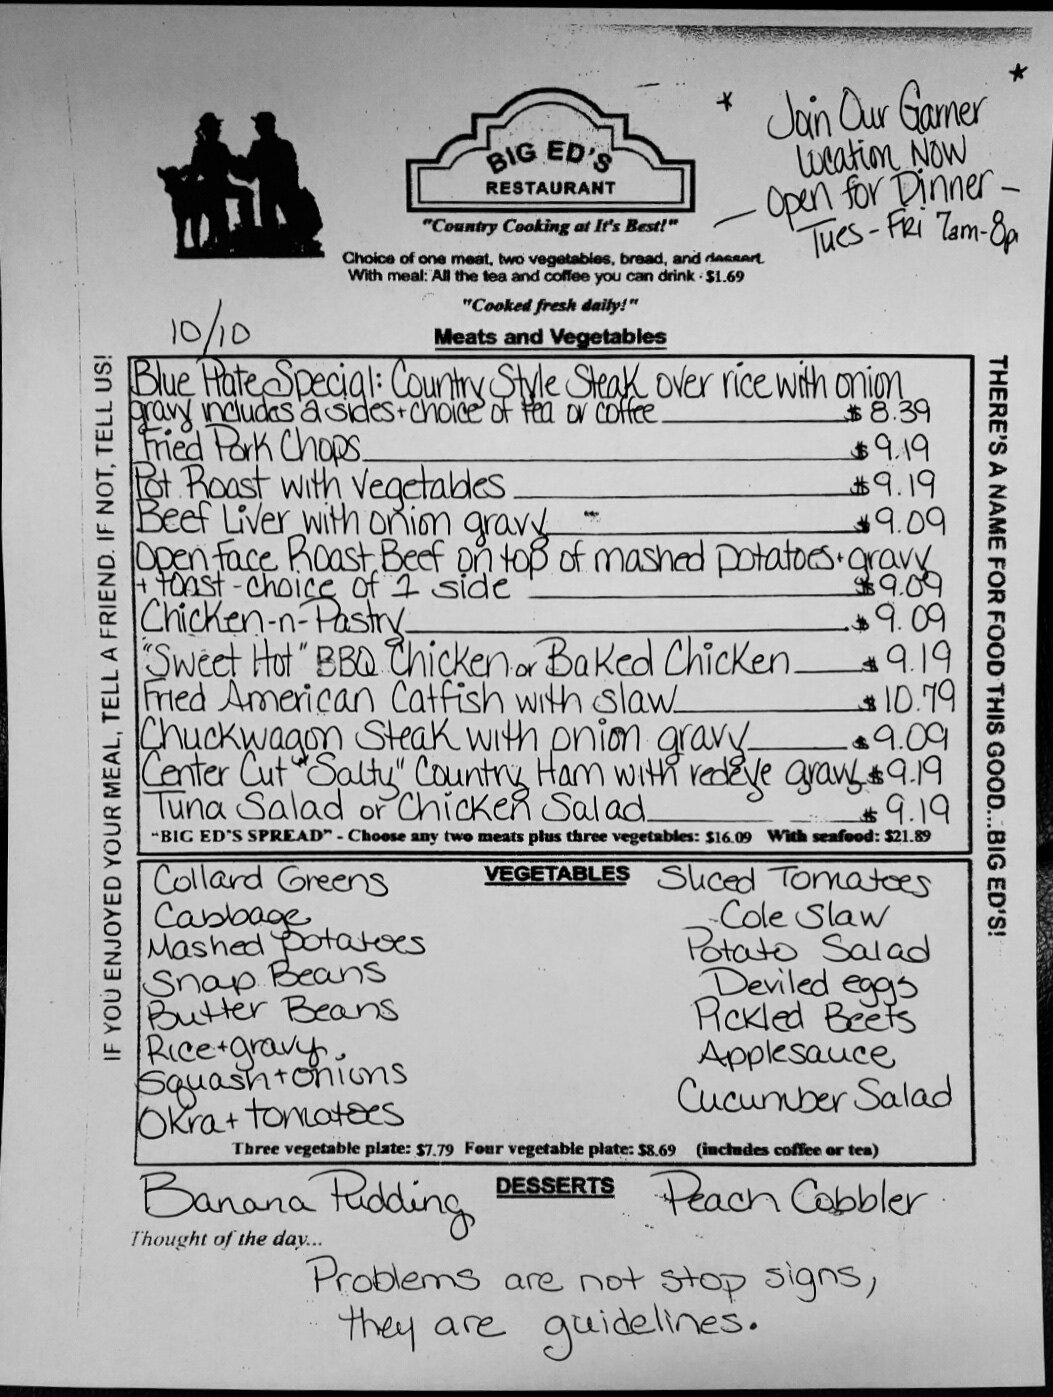 * Join Our Garner *
Location Now
— Open for Dinner —
Tues - Fri 7am-8p
BIG ED'S
RESTAURANT
"Country Cooking at It's Best!"
Choice of one meat, two vegetables, bread, and dessert
With meal: All the tea and coffee you can drink - $1.69
"Cooked fresh daily!"
10/10
Meats and Vegetables
IF YOU ENJOYED YOUR MEAL, TELL A FRIEND. IF NOT, TELL US!
Blue Plate Special: Country Style Steak over rice with onion
gravy includes 2 sides + choice of tea or coffee $8.39
Fried Pork Chops $9.19
Pot Roast with vegetables $9.19
Beef Liver with onion gravy $9.09
Open Face Roast Beef on top of mashed potatoes + gravy
+ toast - choice of 1 side $9.09
Chicken-n-Pastry $9.09
"Sweet Hot" BBQ Chicken or Baked Chicken $9.19
Fried American Catfish with slaw $10.79
Chuckwagon Steak with onion gravy $9.09
Center Cut "Salty" Country Ham with redeye gravy $9.19
Tuna Salad or Chicken Salad $9.19
"BIG ED'S SPREAD" - Choose any two meats plus three vegetables: $16.09 With seafood: $21.89
THERE'S A NAME FOR FOOD THIS GOOD...BIG ED'S!
VEGETABLES
Collard Greens
Cabbage
Mashed potatoes
Snap Beans
Butter Beans
Rice + gravy
Squash + onions
Okra + tomatoes
Sliced Tomatoes
Cole Slaw
Potato Salad
Deviled eggs
Pickled Beets
Applesauce
Cucumber Salad
Three vegetable plate: $7.79 Four vegetable plate: $8.69 (includes coffee or tea)
DESSERTS
Banana Pudding
Peach Cobbler
Thought of the day...
Problems are not stop signs,
they are guidelines.